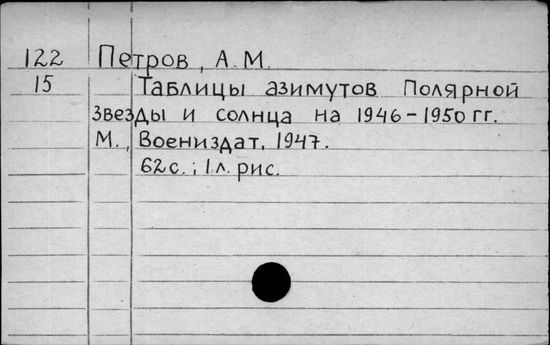 122 Петров, А. М.
15 Таблицы азимутов Полярной
звезды и солнца на 1946-1950 гг.
М., Воениздат, 1947.
62 с.; 1 л. рис.